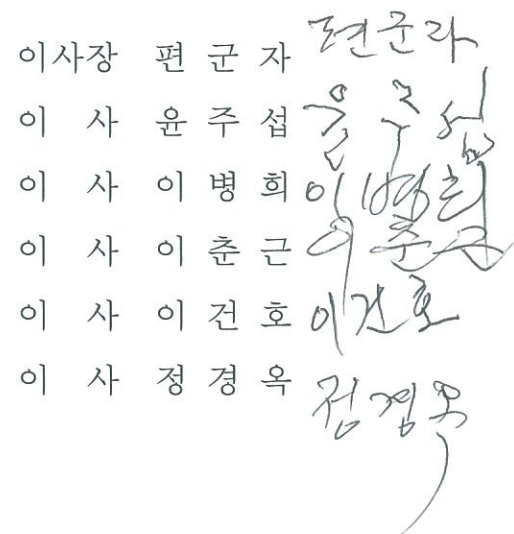 이사장 편군자 편군자
이 사 윤주섭 윤주섭
이 사 이병희 이병희
이 사 이춘근 이춘근
이 사 이건호 이건호
이 사 정경옥 정경옥